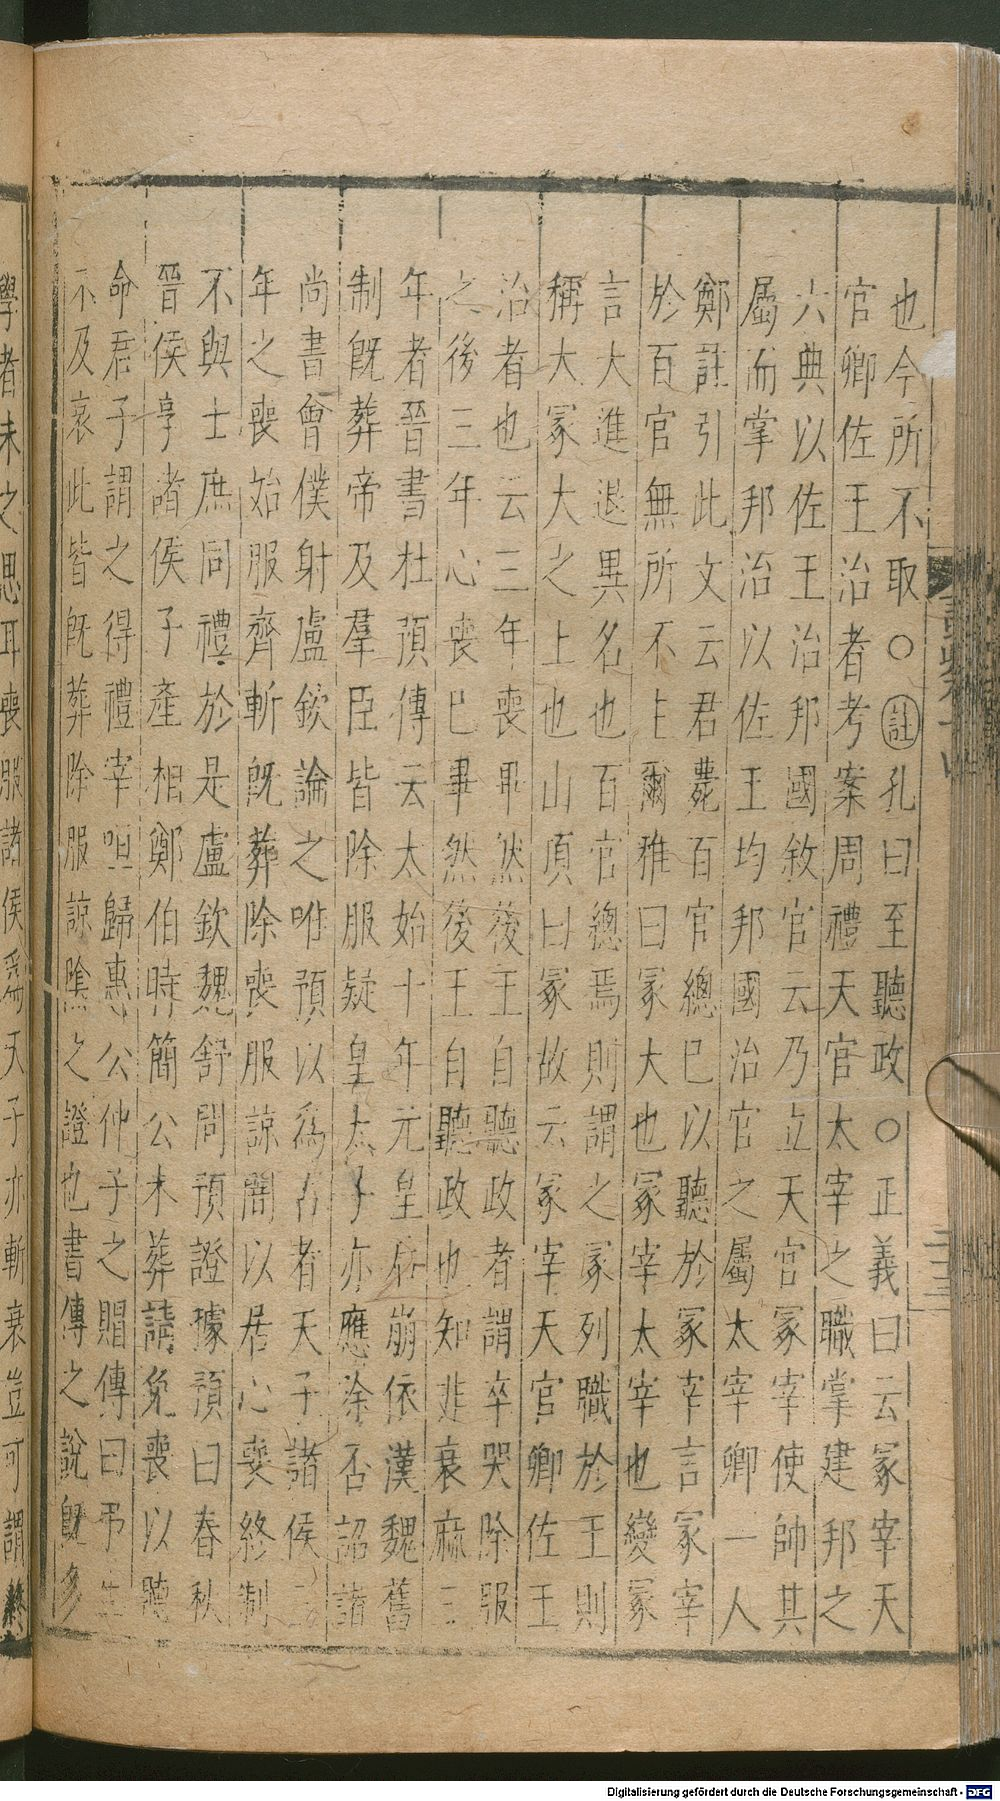 也今所不取○註孔曰至聽政○正義曰云冢宰天
官卿佐王治者考案周禮天官太宰之職掌建邦之
六典以佐王治邦國敘官云乃立天官冢宰使帥其
屬而掌邦治以佐王均邦國治官之屬太宰卿一人
鄭註引此文云君薨百官總巳以聽於冢宰言冢宰
於百官無所不主爾雅曰冢大也冢宰太宰也變冢
言大進退異名也百官總焉則謂之冢列職於王則
稱大冢大之上也山頂曰冢故云冢宰天官卿佐王
治者也云三年喪畢然後王自聽政者謂卒哭除服
之後三年心喪巳畢然後王自聽政也知非衰麻三
年者晉書杜預傳云太始十年元皇后崩依漢魏舊
制旣葬帝及羣臣皆除服疑皇太子亦應除否詔諸
尚書會僕射盧欽論之唯預以為古者天子諸侯三
年之喪始服齊斬旣葬除喪服諒闇以居心喪終制
不與士庶同禮於是盧欽魏舒問預證據預曰春秋
晉侯享諸侯子產相鄭伯時簡公未葬請免喪以聽
命君子謂之得禮宰咺歸惠公仲子之賵傳曰弔生
不及哀此皆旣葬除服諒陰之證也書傳之說旣多
學者未之思耳喪服諸侯爲天子亦斬衰豈可謂終
二十三
Digitalisierung gefördert durch die Deutsche Forschungsgemeinschaft - DFG